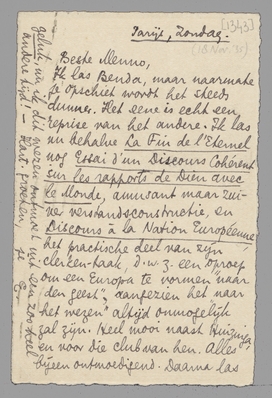 Parijs, Zondag.
[1343]
(18 Nov. 35)
Beste Menno,
Ik las Benda, maar naarmate
je opschiet wordt het steeds
dunner. Het eene is echt een
reprise van het andere. Ik las
nu behalve La Fin de l'Eternel
nog Essai d'un Discours Cohérent
sur les rapports de Dieu avec
le Monde, amusant maar zui-
ver verstandsconstructie, en
Discours à la Nation Européenne
het practische deel van zijn
clerken-taak, d.w.z. een oproep
om een Europa te vormen "naar
den geest", aangezien het naar
"het wezen" altijd onmogelijk
zal zijn. Heel mooi naast Huizinga
en voor die club van hen. Alles
bijeen ontmoedigend. Daarna las
geluk, nu ik dit wezen ontmoet uit een zoo heel
andere tijd! — Hart. groeten, je E.